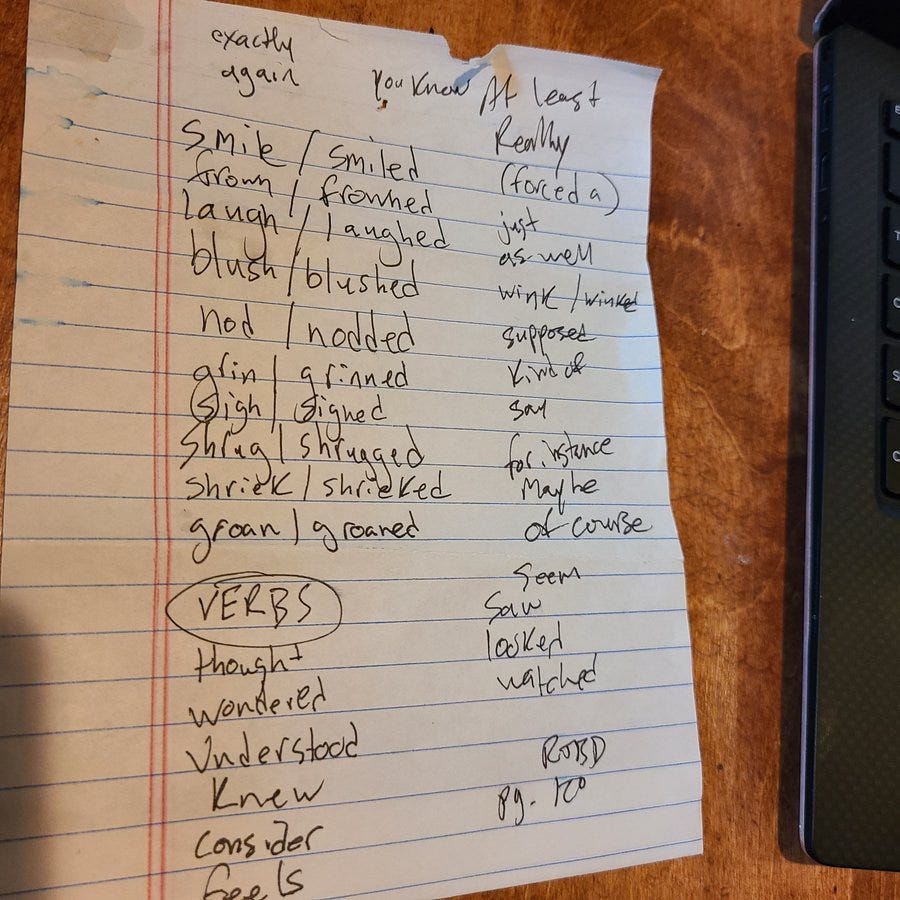 exactly
again
you know At least
Really
smile / smiled
frown / frowned
(forced a)
laugh / laughed
just
as well
blush / blushed
wink / winked
nod / nodded
supposed
grin / grinned
kind of
sigh / signed
say
shrug / shrugged
for instance
shriek / shrieked
Maybe
groan / groaned
of course
seem
VERBS
saw
looked
thought
watched
wondered
Understood
Knew
pg.
consider
feels